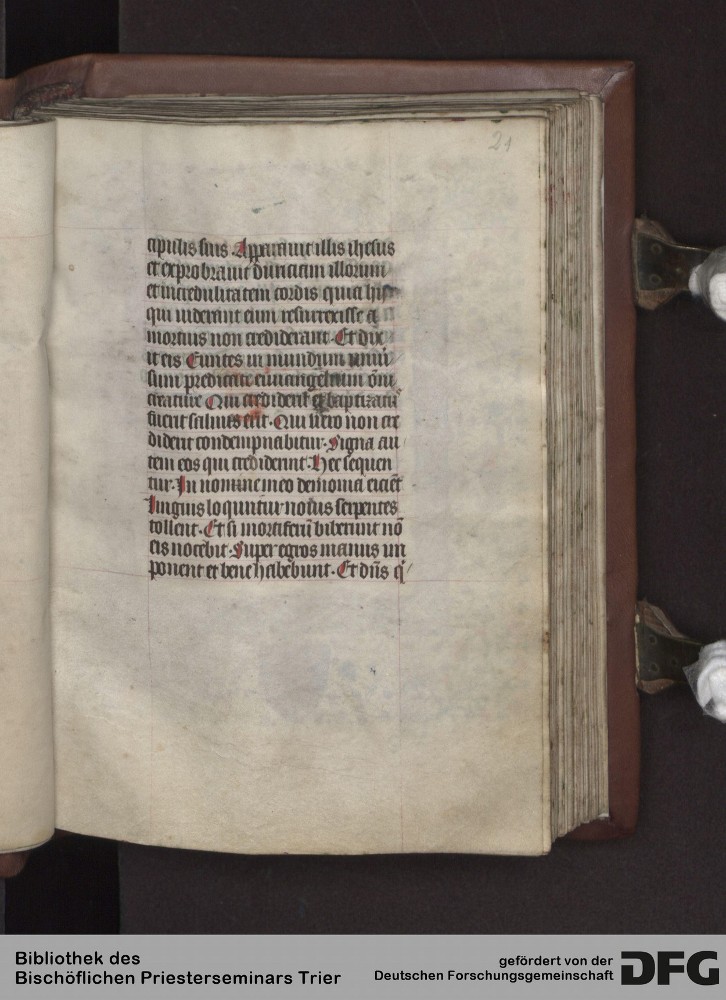 21
cipulis suis Apparauit illis ihesus
et exprobrauit duriciam illorum
et incredulitatem cordis quia his
qui uiderant eum resurrexisse a
mortuis non crediderant. Et dix
it eis Euntes in mundum uniu
sum predicate euuangelium õni
creature Qui crediderit et baptizatus
fuerit saluus erit. Qui uero non cre
diderit condempnabitur. Signa au
tem eos qui crediderint. Hec sequen
tur. In nomine meo demonia eicient
linguis loquuntur nouis serpentes
tollent. Et si mortiferũ biberunt nõ
eis nocebit. Super egros manus im
ponent et bene habebunt. Et dñs q
Bibliothek des
Bischöflichen Priesterseminars Trier
gefördert von der
Deutschen Forschungsgemeinschaft
DFG